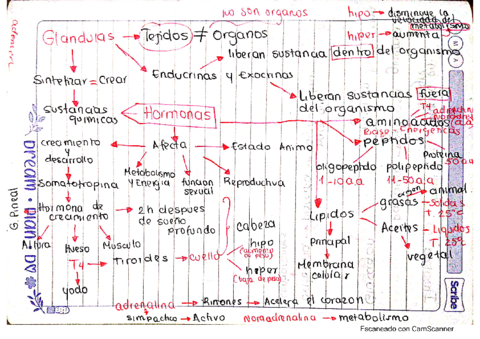 NO SON ORGANOS
hipo → disminuye la velocidad del metabolismo
hiper → aumenta
Glandulas → Tejidos ≠ Organos
liberan sustancia dentro del organismo
Endocrinas y Exocrinas
Sintetizar = Crear
Liberan sustancias fuera del organismo
Sustancias químicas
Hormonas
T4
aminoacidos
a.a
Base Emergencias
peptidos
crecimiento y desarrollo
Afecta
Estado Animo
oligopeptido
1-10 a.a
polipeptido
11-50 a.a
Proteina
50 a.a
Metabolismo y Energia
funcion sexual
Reproductiva
Somatotropina
G Pineal
Hormona de crecimiento
2h despues de sueño profundo
Lipidos
grasas
origen
animal
Solidas
T. 25°C
Aceites
Liquidos
T. 25°C
vegetal
Principal
Membrana celular
Altura
Hueso
Musculo
T4
Tiroides → cuello
cabeza
hipo
(aumento de peso)
hiper
(baja de peso)
yodo
adrenalina → Riñones → Acelera el corazon
simpatico → Activo
Noradrenalina → metabolismo
DREAM • PLAN • DO
Scribe
Escaneado con CamScanner